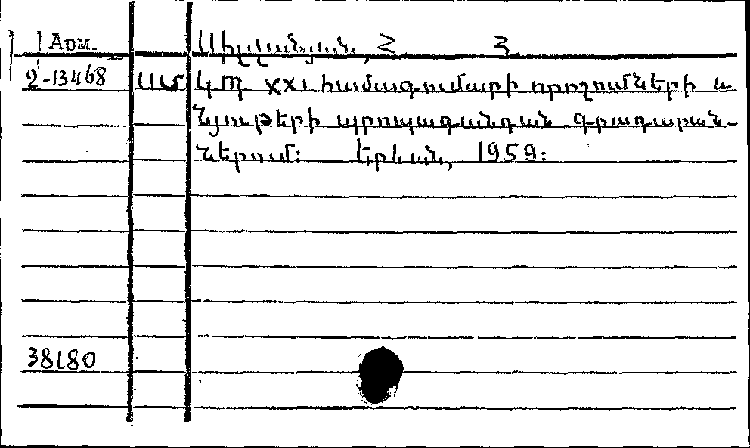 Adm.
2-13468
Միլլանյան, Հ. Հ.
ՍՄ ԿՊ XXI համագումարի որոշումների և
նյութերի պրոպագանդան գրադարան-
ներում: Երևան, 1959:
38180